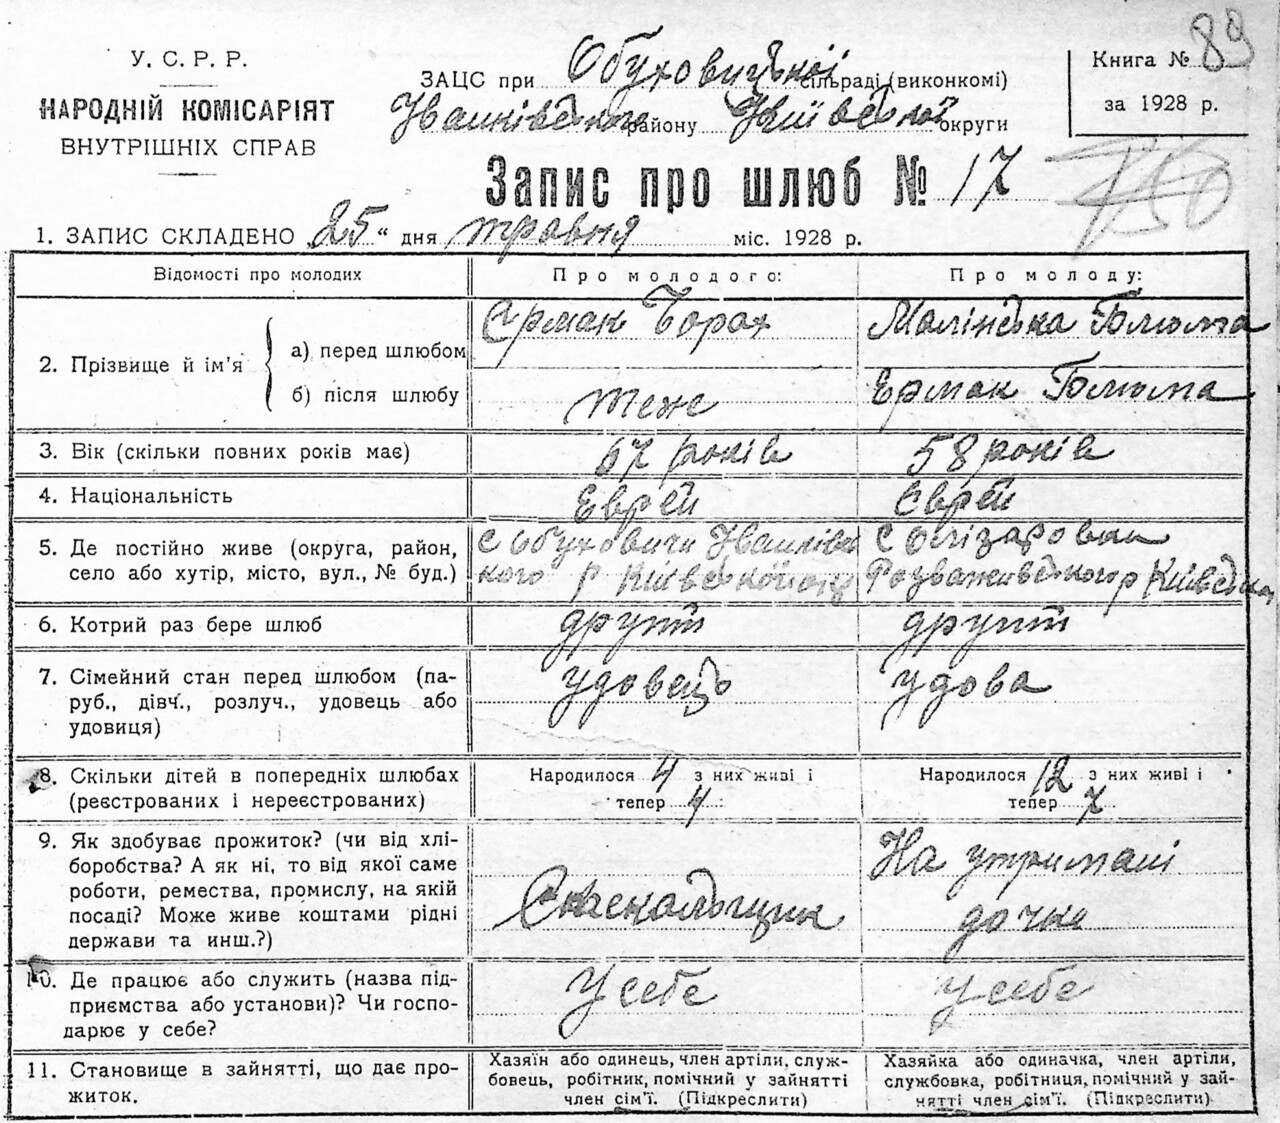 У. С. Р. Р.
НАРОДНІЙ КОМІСАРІЯТ
ВНУТРІШНІХ СПРАВ
ЗАЦС при Обуховицької сільраді (виконкомі)
Іванківського району Київської округи
Книга № 89
за 1928 р.
Запис про шлюб № 17
1. ЗАПИС СКЛАДЕНО „25" дня травня міс. 1928 р.
Відомості про молодих
Про молодого:
Про молоду:
2. Прізвище й ім'я
а) перед шлюбом
Єрмак Борах
Малінська Блюма
б) після шлюбу
теже
Ермак Блюма
3. Вік (скільки повних років має)
67 років
58 років
4. Національність
Еврей
Єврей
5. Де постійно живе (округа, район,
село або хутір, місто, вул., № буд.)
с Обуховичи Іванківсь
кого р Київської
с Олізаровка
Розважівського р Київської
6. Котрий раз бере шлюб
другий
другий
7. Сімейний стан перед шлюбом (па-
руб., дівч., розлуч., удовець або
удовиця)
удовець
удова
8. Скільки дітей в попередніх шлюбах
(реєстрованих і нереєстрованих)
Народилося 4 з них живі і
тепер 4
Народилося 12 з них живі і
тепер 7
9. Як здобуває прожиток? (чи від хлі-
боробства? А як ні, то від якої саме
роботи, ремества, промислу, на якій
посаді? Може живе коштами рідні
держави та инш.?)
На утримані
дочке
10. Де працює або служить (назва під-
приємства або установи)? Чи госпо-
дарює у себе?
У себе
у себе
11. Становище в зайнятті, що дає про-
житок.
Хазяїн або одинець, член артіли, служ-
бовець, робітник, помічний у зайнятті
член сім'ї. (Підкреслити)
Хазяйка або одиначка, член артіли,
службовка, робітниця, помічний у зай-
нятті член сім'ї. (Підкреслити)